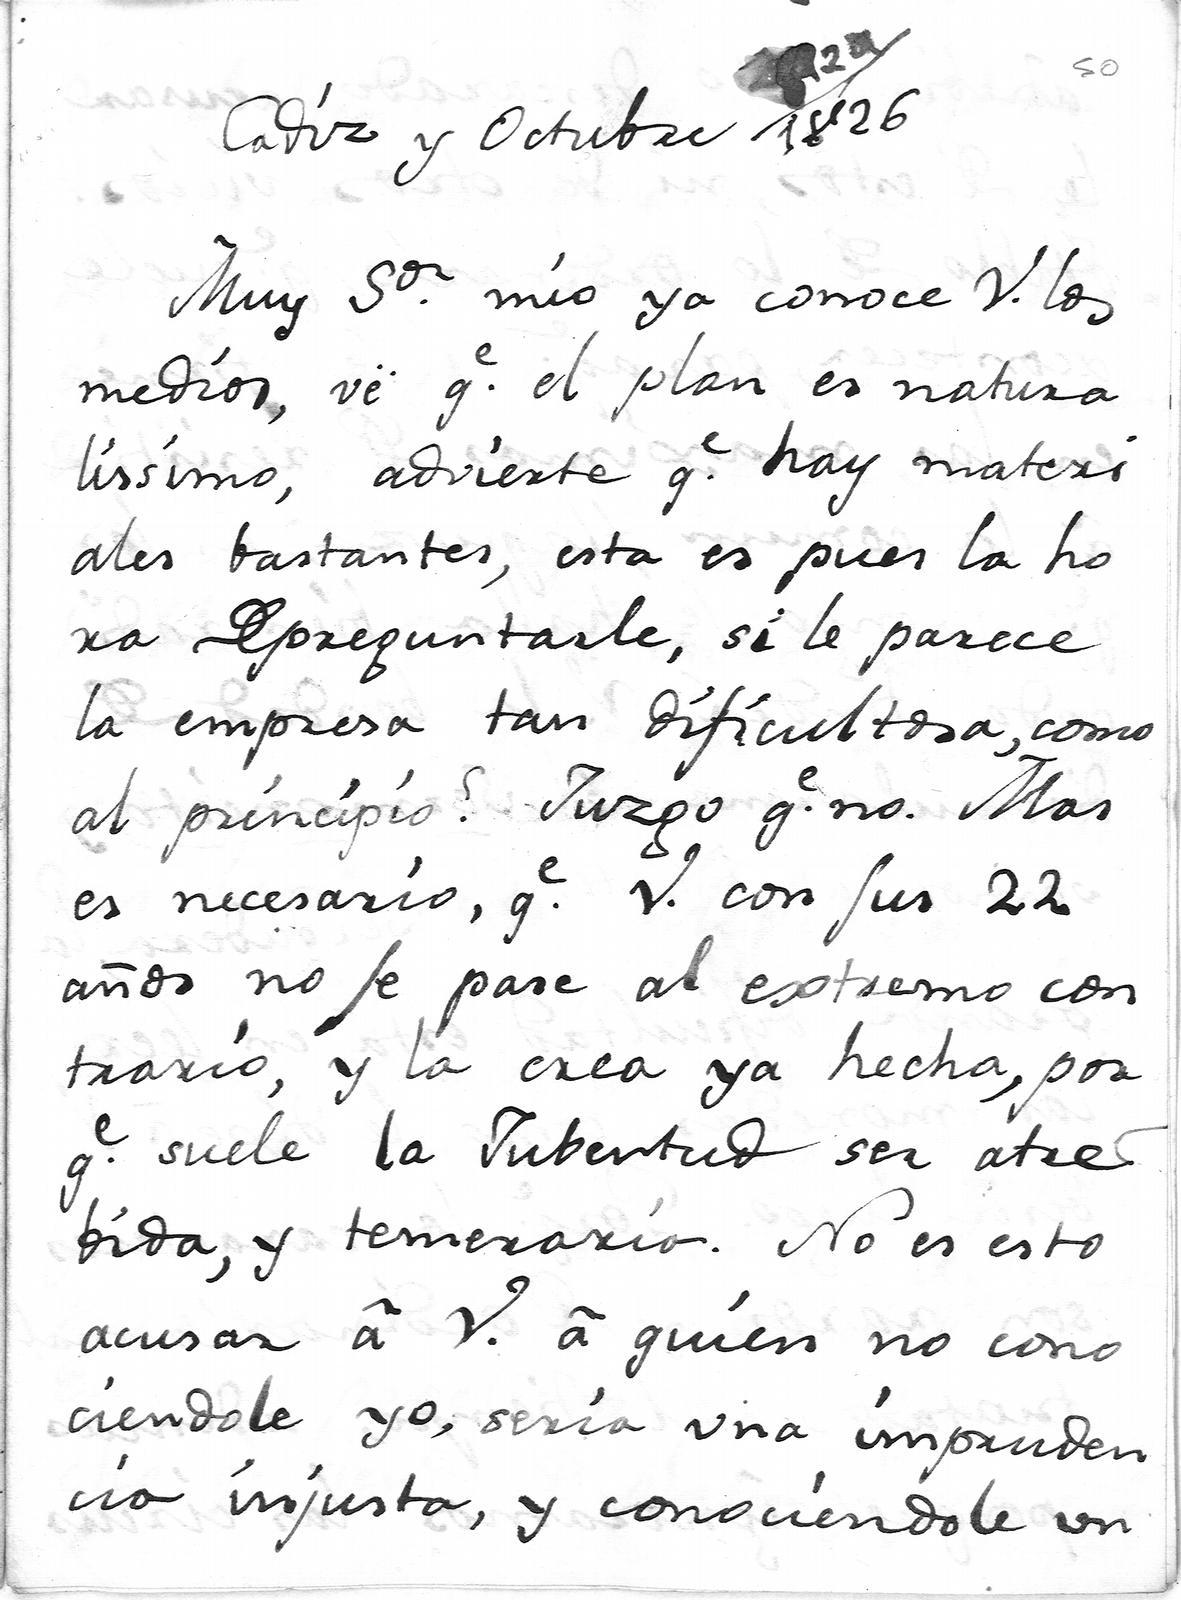 50
Cadiz y Octubre 1826
Muy Sor. mio ya conoce V. los
medios, vë qe. el plan es natura
lissimo, advierte qe. hay materi
ales bastantes, esta es pues la ho
ra De preguntarle, si le parece
la empresa tan dificultosa, como
al principio? Juzgo qe. no. Mas
es necesario, qe. V. con sus 22
años no se pase al extremo con
trario, y la crea ya hecha, por
qe. suele la Jubentud ser atre
bida, y temeraria. No es esto
acusar â V. â quien no cono
ciendole yo, seria vna impruden
cia injusta, y conociendole vn